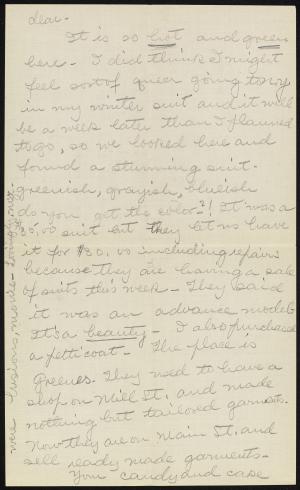 dear.
It is so hot and green
here - I did think I might
feel sort of queer going
in my winter suit and it will
be a week later than I planned
to go, so we looked here and
found a stunning suit.
greenish, grayish, blueish
do you get the color?! It was a
suit but they let us have
it for $30.00 including repairs
because they are having a sale
of suits this week - They said
it was an advance model
It's a beauty - I also purchased
a petticoat - The place is
Greenes. They used to have a
shop on Mill St. and made
nothing but tailored garments.
Now they are on Main St. and
sell ready made garments -
Your candy and case
were